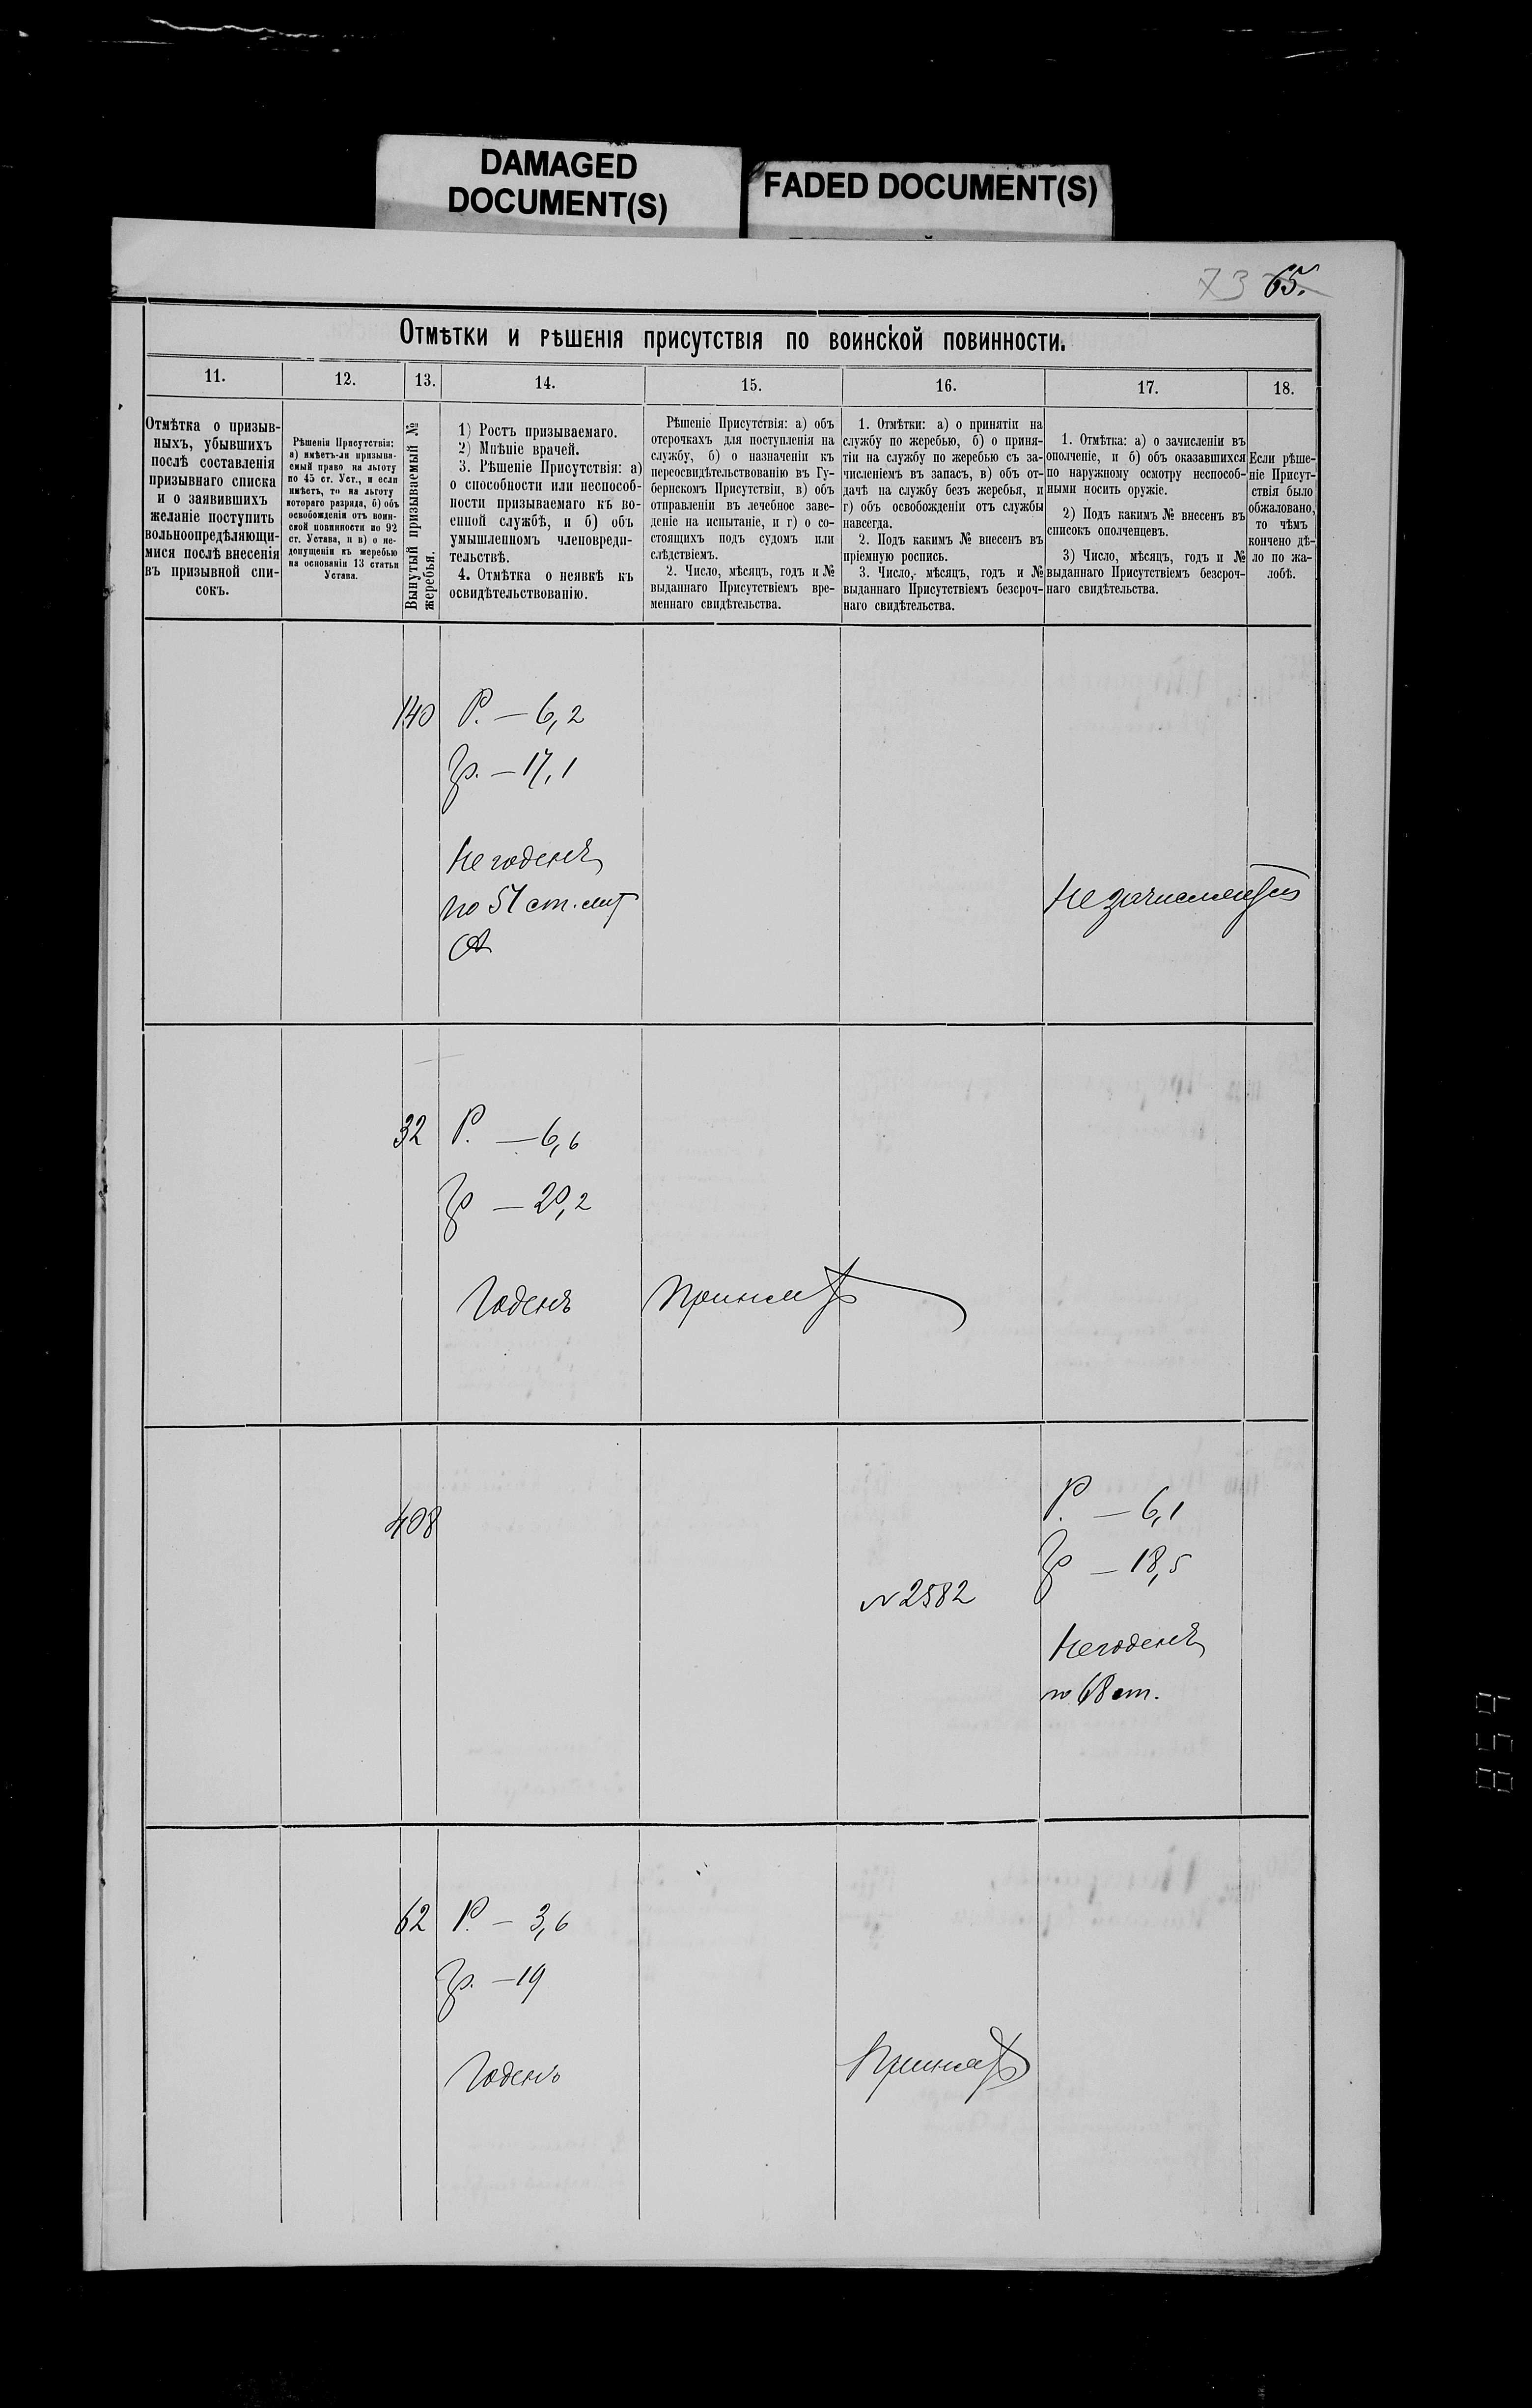 DAMAGED
DOCUMENT(S)
FADED DOCUMENT(S)
73 65.
Отмѣтки и рѣшенія присутствія по воинской повинности.
11.
12.
13.
14.
15.
16.
17.
18.
Отмѣтка о призыв-
ныхъ, убывшихъ
послѣ составленія
призывнаго списка
и о заявившихъ
желаніе поступить
вольноопредѣляющи-
мися послѣ внесенія
въ призывной спи-
сокъ.
Рѣшенія Присутствія:
а) имѣетъ-ли призыва-
емый право на льготу
по 45 ст. Уст., и если
имѣетъ, то на льготу
котораго разряда, б) объ
освобожденіи отъ воин-
ской повинности по 92
ст. Устава, и в) о не-
допущеніи къ жеребью
на основаніи 13 статьи
Устава.
Вынутый призываемый №
жеребья.
1) Ростъ призываемаго.
2) Мнѣніе врачей.
3. Рѣшеніе Присутствія: а)
о способности или неспособ-
ности призываемаго къ во-
енной службѣ, и б) объ
умышленномъ членовреди-
тельствѣ.
4. Отмѣтка о неявкѣ къ
освидѣтельствованію.
Рѣшеніе Присутствія: а) объ
отсрочкахъ для поступленія на
службу, б) о назначеніи къ
переосвидѣтельствованію въ Гу-
бернскомъ Присутствіи, в) объ
отправленіи въ лечебное заве-
деніе на испытаніе, и г) о со-
стоящихъ подъ судомъ или
слѣдствіемъ.
2. Число, мѣсяцъ, годъ и №
выданнаго Присутствіемъ вре-
меннаго свидѣтельства.
1. Отмѣтки: а) о принятіи на
службу по жеребью, б) о приня-
тіи на службу по жеребью съ за-
численіемъ въ запасъ, в) объ от-
дачѣ на службу безъ жеребья, и
г) объ освобожденіи отъ службы
навсегда.
2. Подъ какимъ № внесенъ въ
пріемную роспись.
3. Число, мѣсяцъ, годъ и №
выданнаго Присутствіемъ безсроч-
наго свидѣтельства.
1. Отмѣтка: а) о зачисленіи въ
ополченіе, и б) объ оказавшихся
по наружному осмотру неспособ-
ными носить оружіе.
2) Подъ какимъ № внесенъ въ
списокъ ополченцевъ.
3) Число, мѣсяцъ, годъ и №
выданнаго Присутствіемъ безсроч-
наго свидѣтельства.
Если рѣше-
ніе Присут-
ствія было
обжаловано,
то чѣмъ
кончено дѣ-
ло по жа-
лобѣ.
140
Р. — 6,2
Гр. — 17,1
Не годенъ
по 51 ст. лит
А
Не зачисляется
32
Р. — 6,6
Гр — 20,2
Годенъ
Принятъ
408
N 2582
Р. — 6,1
Гр — 18,5
Не годенъ
по 68 ст.
62
Р. — 3,6
Гр. — 19
Годенъ
Принятъ
859